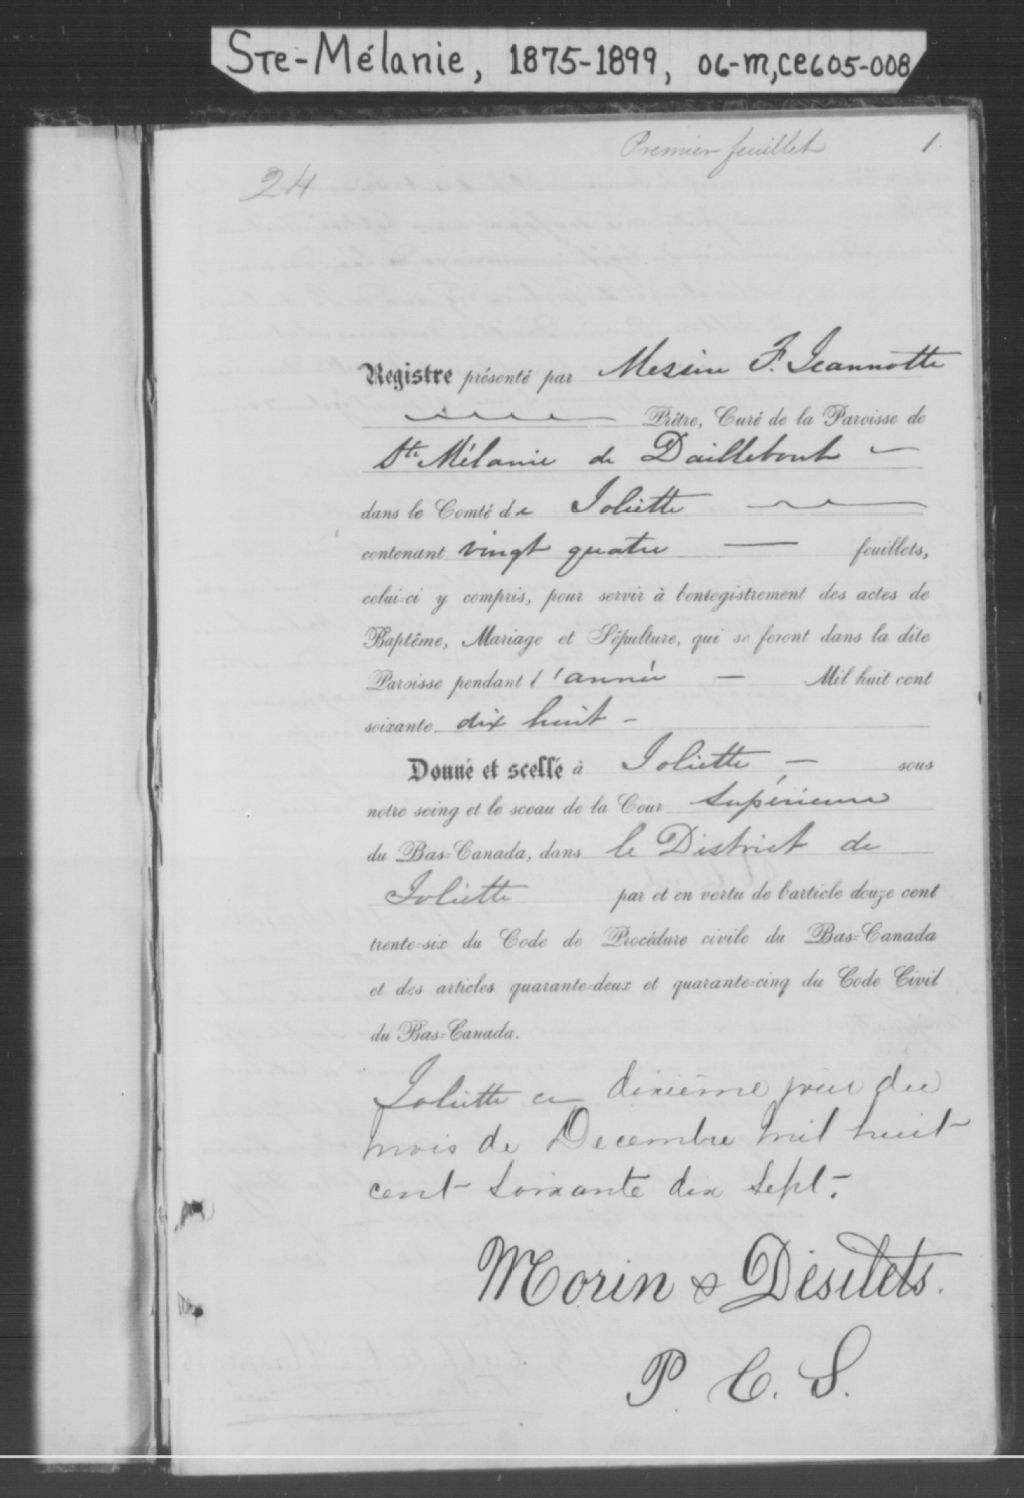 Ste-Mélanie, 1875-1899, 06-M,CE605-008
Premier feuillet 1.
24
Registre présenté par Messire F. Jeannotte
Prêtre, Curé de la Paroisse de
Ste Mélanie de Daillebout
dans le Comté de Joliette
contenant vingt quatre feuillets,
celui-ci y compris, pour servir à l'enregistrement des actes de
Baptême, Mariage et Sépulture, qui se feront dans la dite
Paroisse pendant l'année Mil huit cent
soixante dix huit -
Donné et scellé à Joliette sous
notre seing et le sceau de la Cour Supérieure
du Bas-Canada, dans le District de
Joliette par et en vertu de l'article douze cent
trente-six du Code de Procédure civile du Bas-Canada
et des articles quarante-deux et quarante-cinq du Code Civil
du Bas-Canada.
Joliette ce dixième jour du
mois de Decembre mil huit
cent soixante dix sept.
Morin & Désilets.
P. C. S.